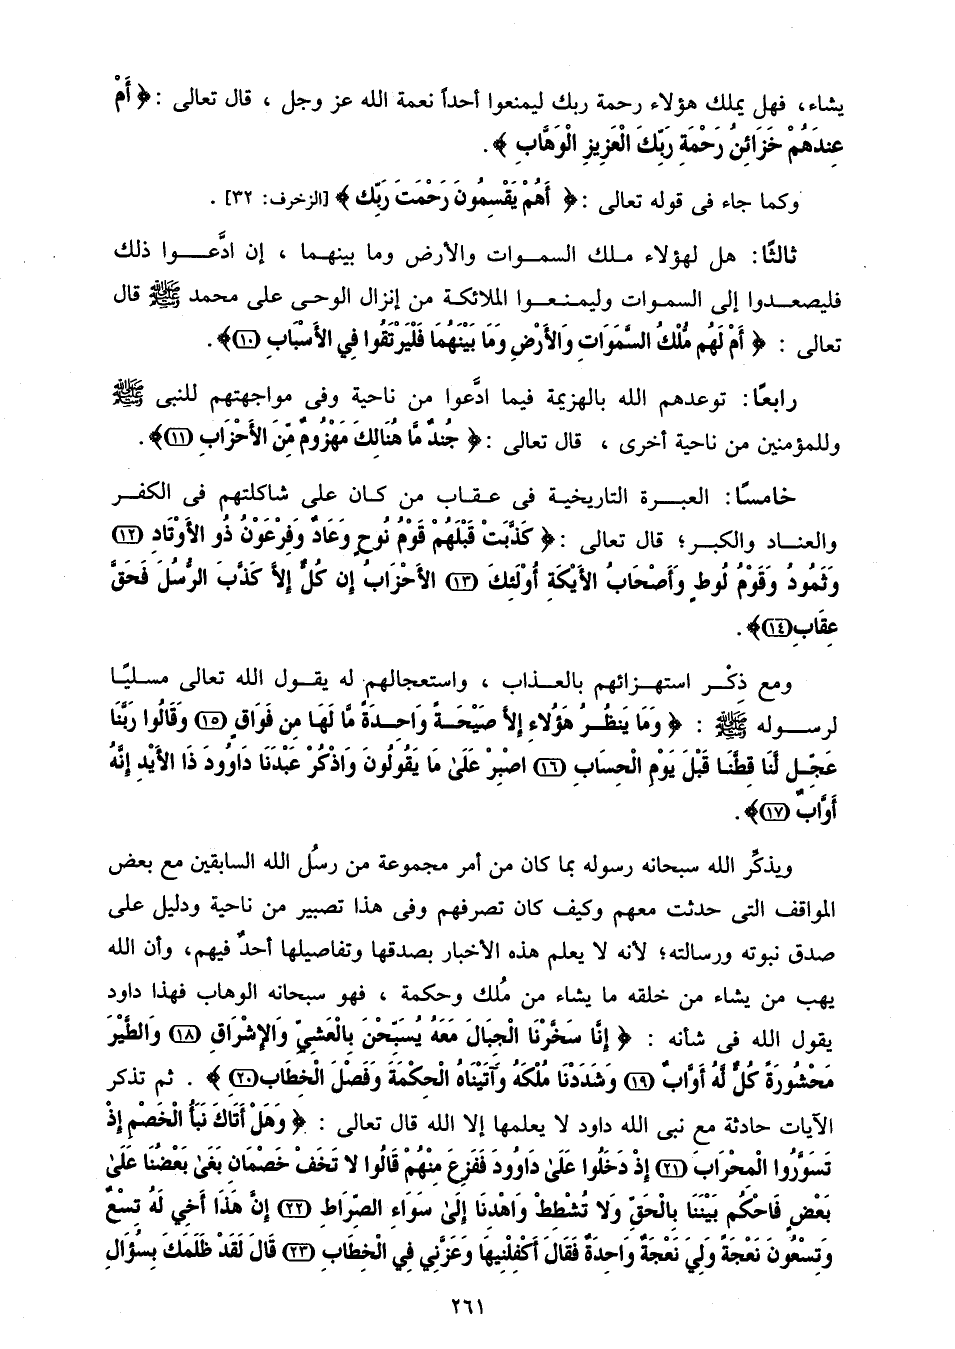 يشاء، فهل يملك هؤلاء رحمة ربك ليمنعوا أحداً نعمة الله عز وجل ، قال تعالى :﴿ أَمْ
عِندَهُمْ خَزَائِنُ رَحْمَةِ رَبِّكَ الْعَزِيزِ الْوَهَّابِ ﴾.
وكما جاء فى قوله تعالى :﴿ أَهُمْ يَقْسِمُونَ رَحْمَتَ رَبِّكَ ﴾ [الزخرف: ٣٢] .
ثالثًا: هل لهؤلاء ملك السموات والأرض وما بينهما ، إن ادَّعوا ذلك
فليصعدوا إلى السموات وليمنعوا الملائكة من إنزال الوحى على محمد ﷺ قال
تعالى : ﴿ أَمْ لَهُم مُّلْكُ السَّمَوَاتِ وَالأَرْضِ وَمَا بَيْنَهُمَا فَلْيَرْتَقُوا فِي الأَسْبَابِ (١٠)﴾.
رابعًا: توعدهم الله بالهزيمة فيما ادَّعوا من ناحية وفى مواجهتهم للنبى ﷺ
وللمؤمنين من ناحية أخرى ، قال تعالى :﴿ جُندٌ مَّا هُنَالِكَ مَهْزُومٌ مِّنَ الأَحْزَابِ (١١)﴾.
خامسًا: العبرة التاريخية فى عقاب من كان على شاكلتهم فى الكفر
والعناد والكبر؛ قال تعالى :﴿ كَذَّبَتْ قَبْلَهُمْ قَوْمُ نُوحٍ وَعَادٌ وَفِرْعَوْنُ ذُو الأَوْتَادِ (١٢)
وَثَمُودُ وَقَوْمُ لُوطٍ وَأَصْحَابُ الأَيْكَةِ أُوْلَئِكَ (١٣) الأَحْزَابُ إِن كُلٌّ إِلاَّ كَذَّبَ الرُّسُلَ فَحَقَّ
عِقَابِ(١٤)﴾.
ومع ذِكْر استهزائهم بالعذاب ، واستعجالهم له يقول الله تعالى مسليًا
لرسوله ﷺ : ﴿ وَمَا يَنظُرُ هَؤُلاءِ إِلاَّ صَيْحَةً وَاحِدَةً مَّا لَهَا مِن فَوَاقٍ (١٥) وَقَالُوا رَبَّنَا
عَجِّل لَّنَا قِطَّنَا قَبْلَ يَوْمِ الْحِسَابِ (١٦) اصْبِرْ عَلَىٰ مَا يَقُولُونَ وَاذْكُرْ عَبْدَنَا دَاوُودَ ذَا الأَيْدِ إِنَّهُ
أَوَّابٌ (١٧)﴾.
ويذكِّر الله سبحانه رسوله بما كان من أمر مجموعة من رسُل الله السابقين مع بعض
المواقف التى حدثت معهم وكيف كان تصرفهم وفى هذا تصبير من ناحية ودليل على
صدق نبوته ورسالته؛ لأنه لا يعلم هذه الأخبار بصدقها وتفاصيلها أحدٌ فيهم، وأن الله
يهب من يشاء من خلقه ما يشاء من مُلك وحكمة ، فهو سبحانه الوهاب فهذا داود
يقول الله فى شأنه : ﴿ إِنَّا سَخَّرْنَا الْجِبَالَ مَعَهُ يُسَبِّحْنَ بِالْعَشِيِّ وَالإِشْرَاقِ (١٨) وَالطَّيْرَ
مَحْشُورَةً كُلٌّ لَّهُ أَوَّابٌ (١٩) وَشَدَدْنَا مُلْكَهُ وَآتَيْنَاهُ الْحِكْمَةَ وَفَصْلَ الْخِطَابِ(٢٠) ﴾ . ثم تذكر
الآيات حادثة مع نبى الله داود لا يعلمها إلا الله قال تعالى : ﴿ وَهَلْ أَتَاكَ نَبَأُ الْخَصْمِ إِذْ
تَسَوَّرُوا الْمِحْرَابَ (٢١) إِذْ دَخَلُوا عَلَىٰ دَاوُودَ فَفَزِعَ مِنْهُمْ قَالُوا لا تَخَفْ خَصْمَانِ بَغَىٰ بَعْضُنَا عَلَىٰ
بَعْضٍ فَاحْكُم بَيْنَنَا بِالْحَقِّ وَلا تُشْطِطْ وَاهْدِنَا إِلَىٰ سَوَاءِ الصِّرَاطِ (٢٢) إِنَّ هَذَا أَخِي لَهُ تِسْعٌ
وَتِسْعُونَ نَعْجَةً وَلِيَ نَعْجَةٌ وَاحِدَةٌ فَقَالَ أَكْفِلْنِيهَا وَعَزَّنِي فِي الْخِطَابِ (٢٣) قَالَ لَقَدْ ظَلَمَكَ بِسُؤَالِ
٢٦١